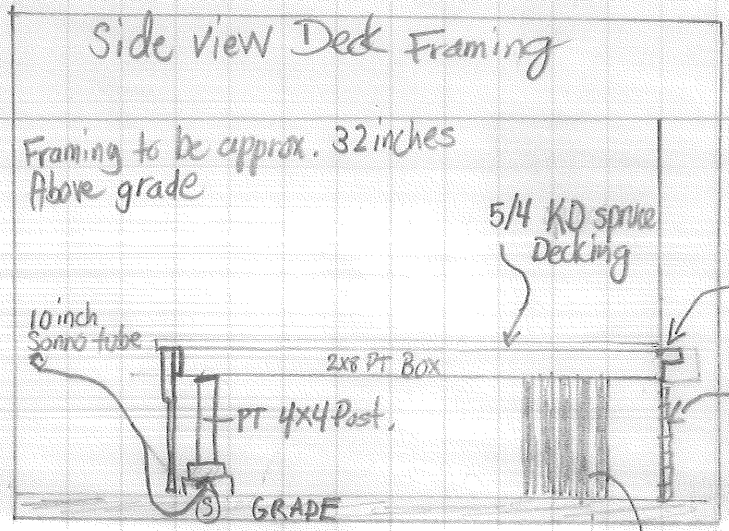 Side view Deck Framing
Framing to be approx. 32 inches
Above grade
5/4 KD spruce
Decking
10 inch
Sonno tube
2x8 PT Box
PT 4x4 Post.
S
GRADE